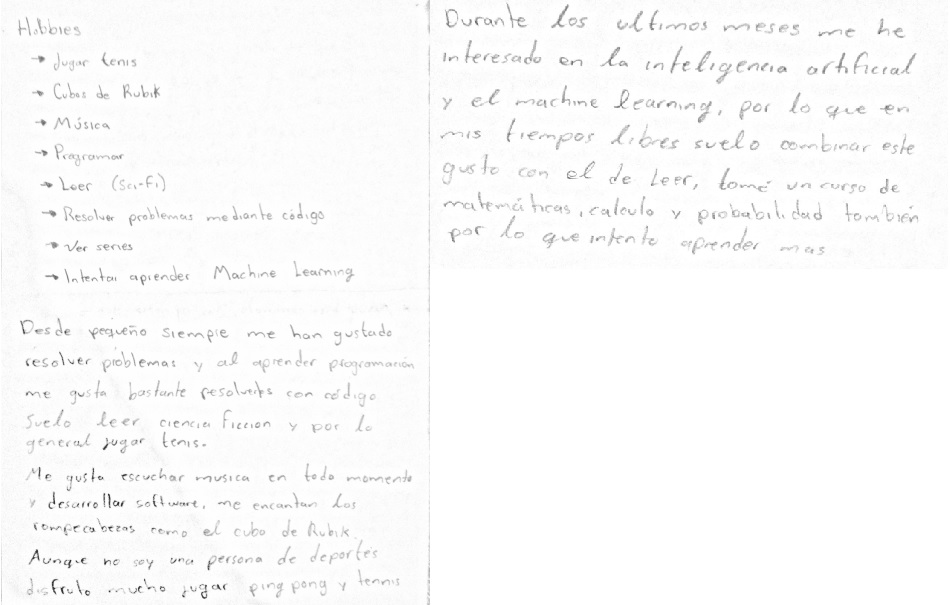 Hobbies
→ Jugar tenis
→ Cubos de Rubik
→ Música
→ Programar
→ Leer (Sci-Fi)
→ Resolver problemas mediante código
→ Ver series
→ Intentar aprender Machine Learning
Desde pequeño siempre me han gustado
resolver problemas y al aprender programación
me gusta bastante resolverlos con código
Suelo leer ciencia ficcion y por lo
general jugar tenis.
Me gusta escuchar musica en todo momento
y desarrollar software, me encantan los
rompecabezas como el cubo de Rubik.
Aunque no soy una persona de deportes
disfruto mucho jugar ping pong y tennis
Durante los ultimos meses me he
interesado en la inteligencia artificial
y el machine learning, por lo que en
mis tiempos libres suelo combinar este
gusto con el de leer, tomé un curso de
matemáticas, calculo y probabilidad también
por lo que intento aprender mas